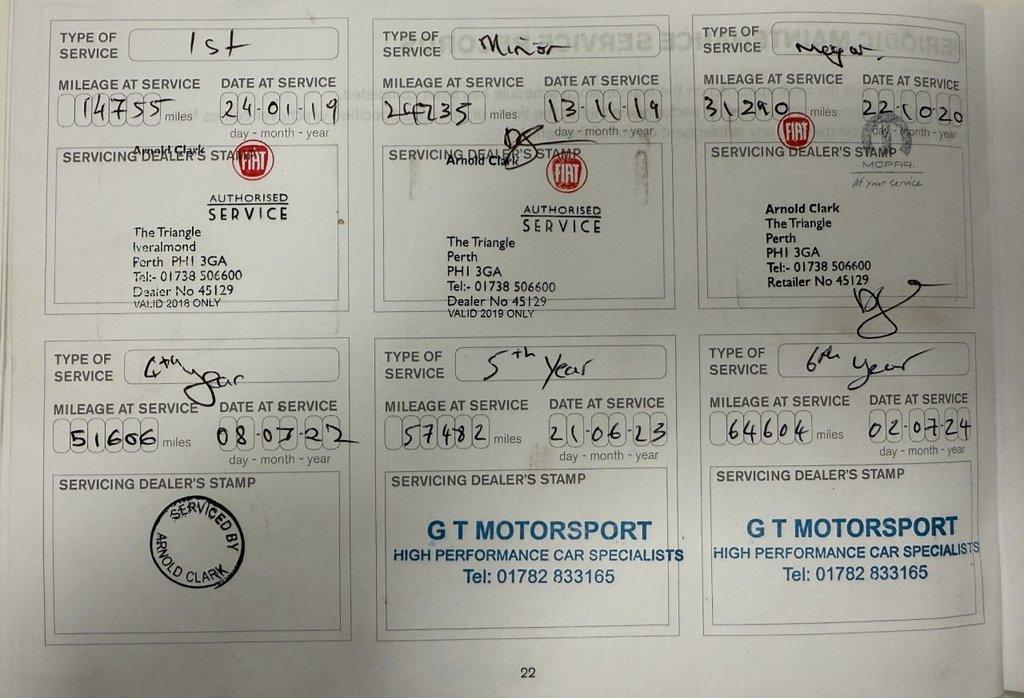 TYPE OF SERVICE 1st
MILEAGE AT SERVICE DATE AT SERVICE
14755 miles 24-01-19
day - month - year
SERVICING DEALER'S STAMP
Arnold Clark
FIAT
AUTHORISED
SERVICE
The Triangle
Iveralmond
Perth PH1 3GA
Tel:- 01738 506600
Dealer No 45129
VALID 2018 ONLY
TYPE OF SERVICE Minor
MILEAGE AT SERVICE DATE AT SERVICE
24235 miles 13-11-19
day - month - year
SERVICING DEALER'S STAMP
Arnold Clark
FIAT
AUTHORISED
SERVICE
The Triangle
Perth
PH1 3GA
Tel:- 01738 506600
Dealer No 45129
VALID 2019 ONLY
TYPE OF SERVICE Major
MILEAGE AT SERVICE DATE AT SERVICE
31290 miles 22-1020
day - month - year
FIAT
SERVICING DEALER'S STAMP
MOPAR
At your service
Arnold Clark
The Triangle
Perth
PH1 3GA
Tel:- 01738 506600
Retailer No 45129
TYPE OF SERVICE 4th year
MILEAGE AT SERVICE DATE AT SERVICE
51606 miles 08-07-22
day - month - year
SERVICING DEALER'S STAMP
SERVICED BY
ARNOLD CLARK
TYPE OF SERVICE 5th Year
MILEAGE AT SERVICE DATE AT SERVICE
57482 miles 21-06-23
day - month - year
SERVICING DEALER'S STAMP
G T MOTORSPORT
HIGH PERFORMANCE CAR SPECIALISTS
Tel: 01782 833165
TYPE OF SERVICE 6th year
MILEAGE AT SERVICE DATE AT SERVICE
64604 miles 02-07-24
day - month - year
SERVICING DEALER'S STAMP
G T MOTORSPORT
HIGH PERFORMANCE CAR SPECIALISTS
Tel: 01782 833165
22